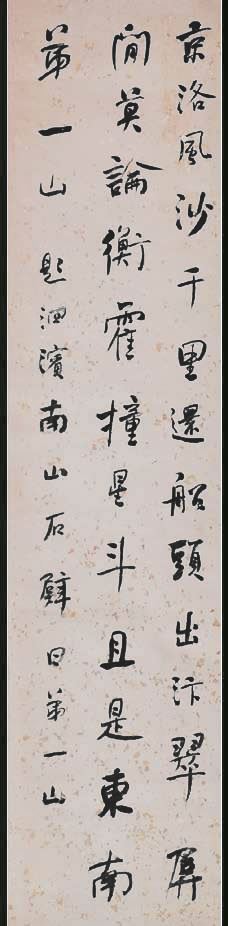 京洛風沙千里還船頭出汴翠屏
間莫論衡霍撞星斗且是東南
第一山 題泗濱南山石壁曰第一山